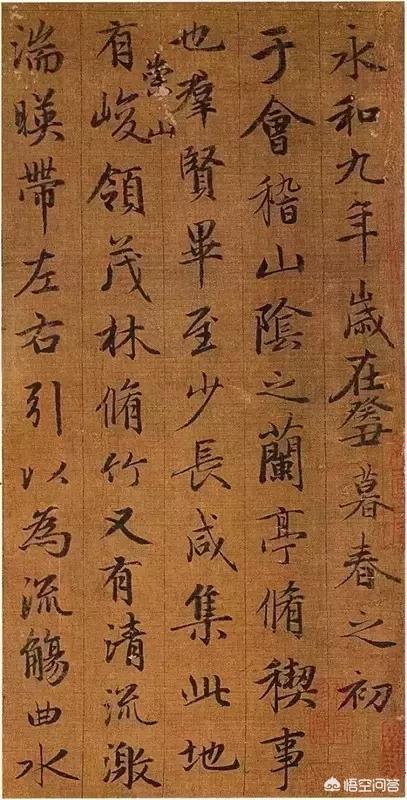 永和九年歲在癸丑暮春之初
于會稽山陰之蘭亭脩稧事
也羣賢畢至少長咸集此地
有崇山峻領茂林脩竹又有清流激
湍暎帶左右引以為流觴曲水
悟空问答